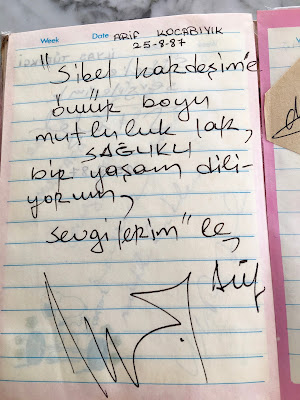 Week Date ARİF KOCABIYIK
25-8-87
"Sibel kardeşim'e
ömür boyu
mutluluk lar,
SAĞLIKLI
bir yaşam dili-
yorum,
sevgilerim" le,
Arif